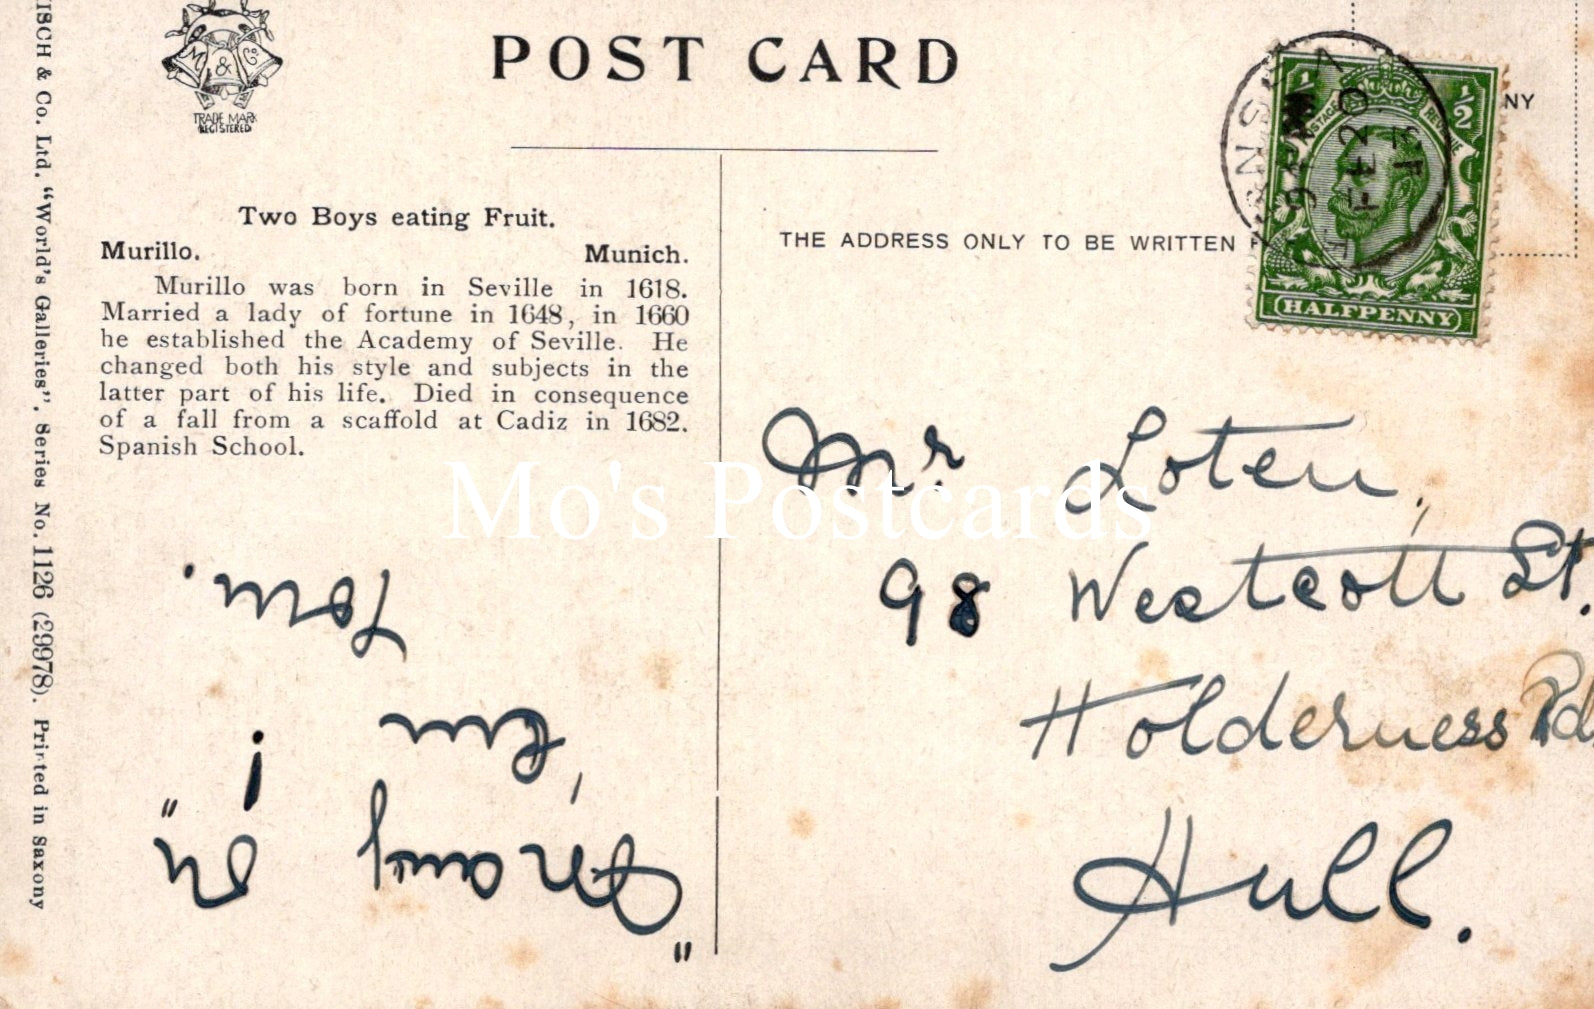 M & Co.
TRADE MARK
REGISTERED
POST CARD
ISCH & Co. Ltd. "World's Galleries". Series No. 1126 (29978). Printed in Saxony
Two Boys eating Fruit.
Murillo. Munich.
Murillo was born in Seville in 1618.
Married a lady of fortune in 1648, in 1660
he established the Academy of Seville. He
changed both his style and subjects in the
latter part of his life. Died in consequence
of a fall from a scaffold at Cadiz in 1682.
Spanish School.
Tom.
THE ADDRESS ONLY TO BE WRITTEN
NY
FE 20
13
½ ½
POSTAGE REVENUE
HALFPENNY
Mr Loten,
98 Westcott St.
Holderness Rd
Hull.
Mo's Postcards